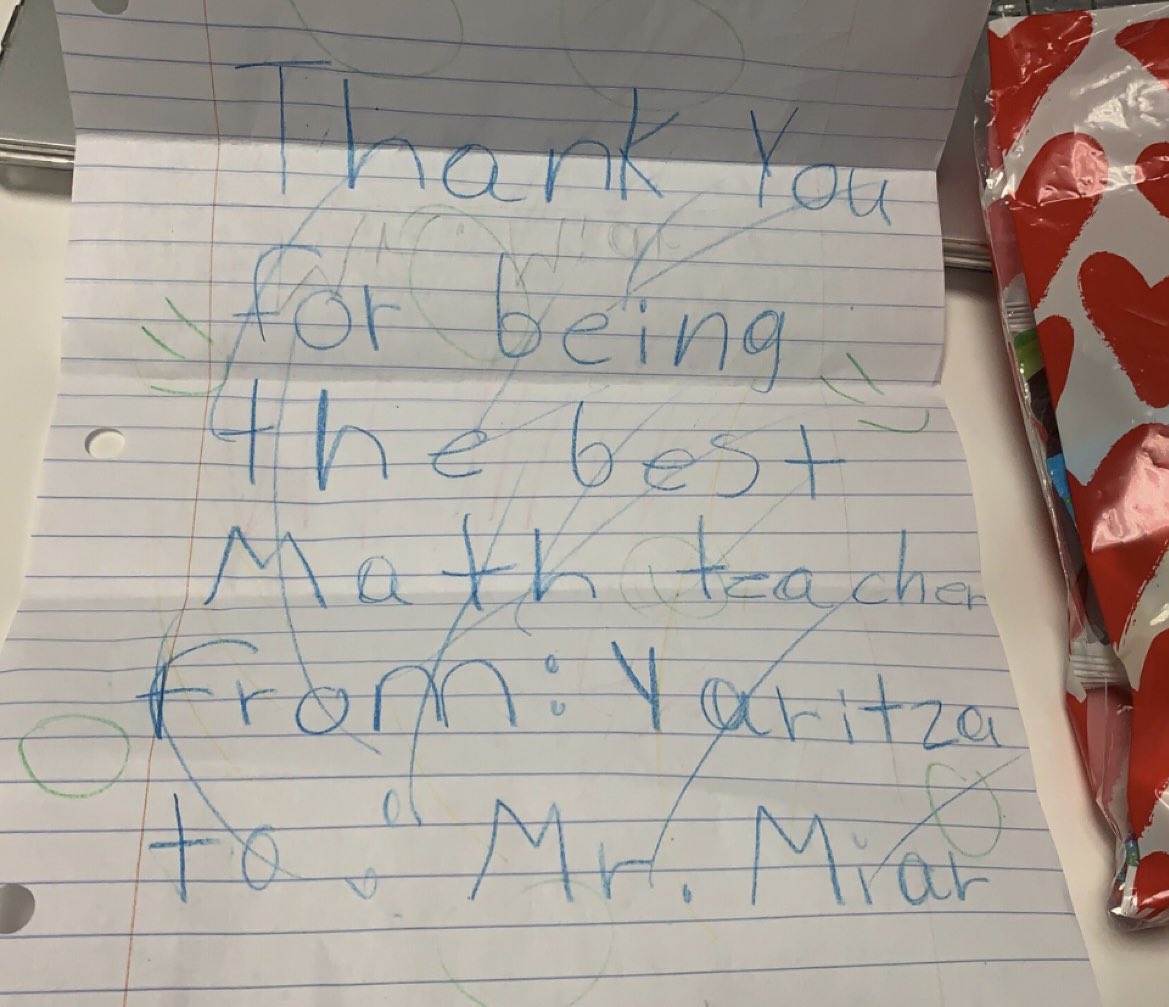 Thank You
for being
the best
Math teacher
From: Yaritza
to: Mr. Miar